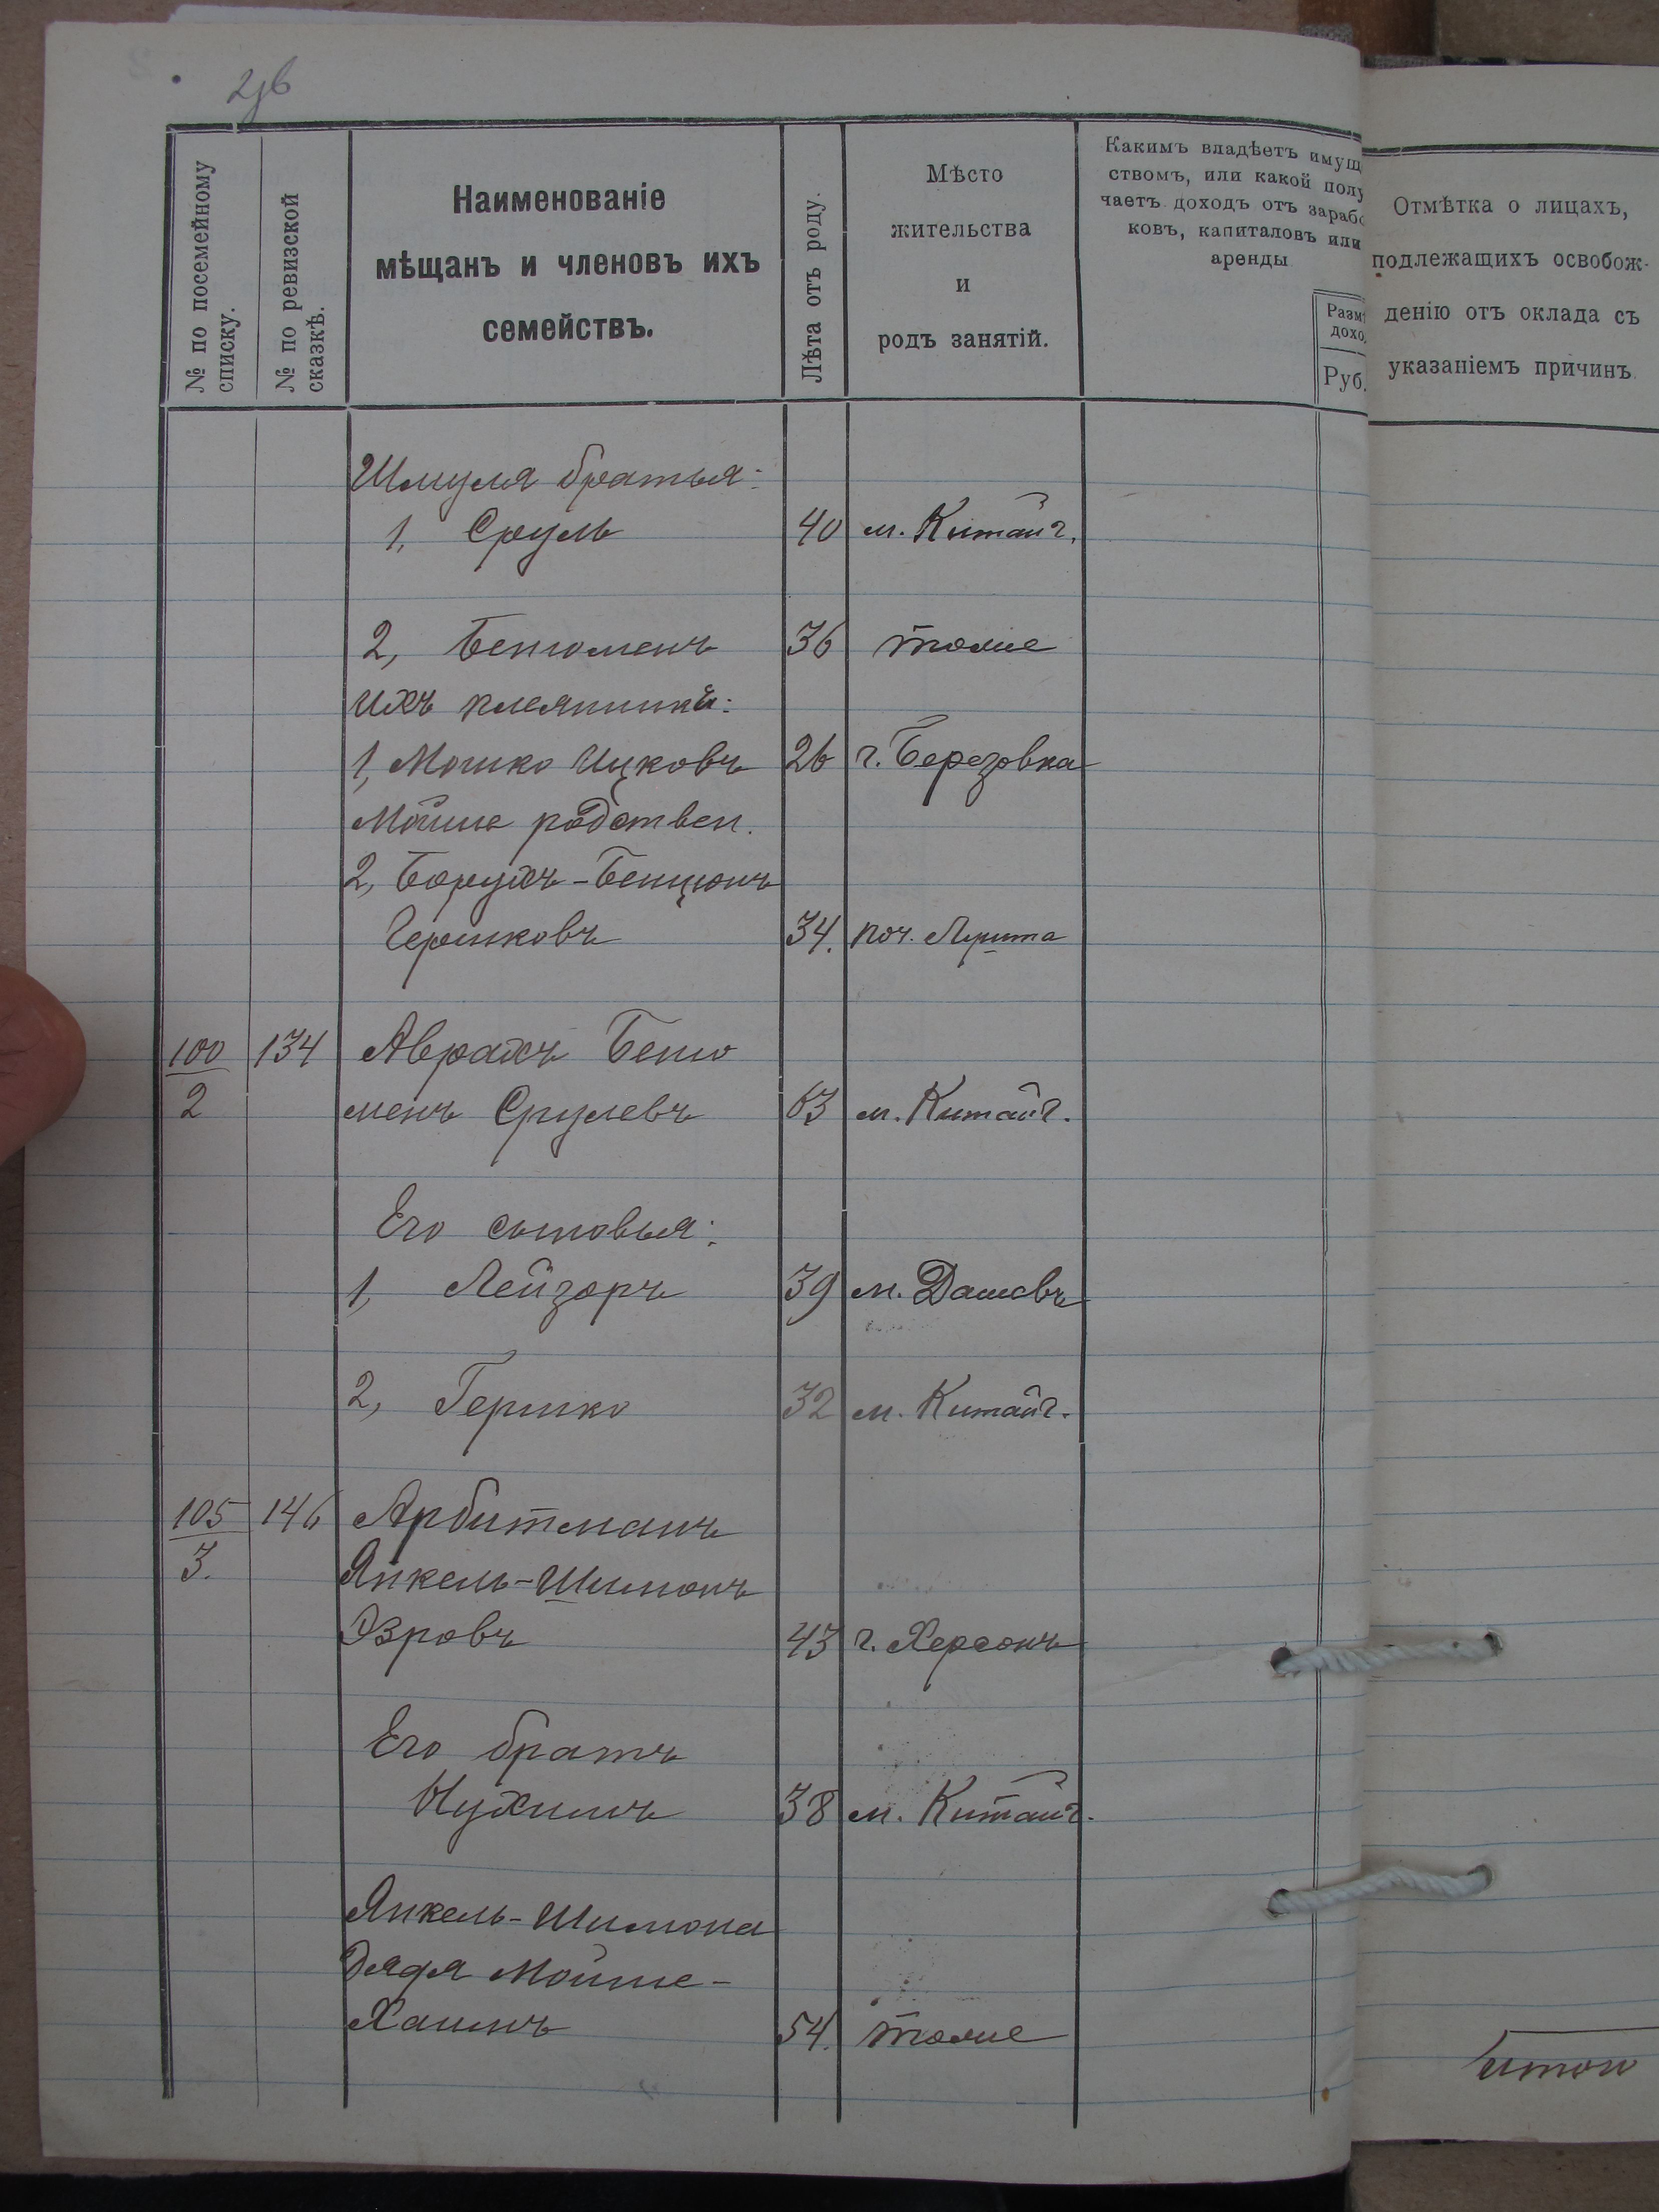 2об
№ по посемейному
списку.
№ по ревизской
сказкѣ.
Наименованіе
мѣщанъ и членовъ ихъ
семействъ.
Лѣта отъ роду.
Мѣсто
жительства
и
родъ занятій.
Какимъ владѣетъ имущ
ствомъ, или какой полу
чаетъ доходъ отъ зарабо
ковъ, капиталовъ или
аренды
Разм
дохо
Руб.
Отмѣтка о лицахъ,
подлежащихъ освобож-
денію отъ оклада съ
указаніемъ причинъ.
Шмуля братья:
1, Сруль 40 м. Китайг.
2, Бенюменъ 36 тоже
Ихъ племянники:
1, Мошко Ицковъ 26 г. Березовка
Мойше родствен.
2, Борухъ-Бенціонъ
Гершковъ 34. поч.
100 134 Аврахъ Беню
2 менъ Срулевъ 63 м. Китайг.
Его сыновья:
1, Лейзоръ 39 м. Дашевъ
2, Гершко 32 м. Китайг.
105 146 Арбитманъ
3. Янкель-Шимонъ
Эзровъ 43 г. Херсонъ
Его братъ
Нухимъ 38 м. Китайг.
Янкель-Шимона
дядя Мойше-
Хаимъ 54. тоже